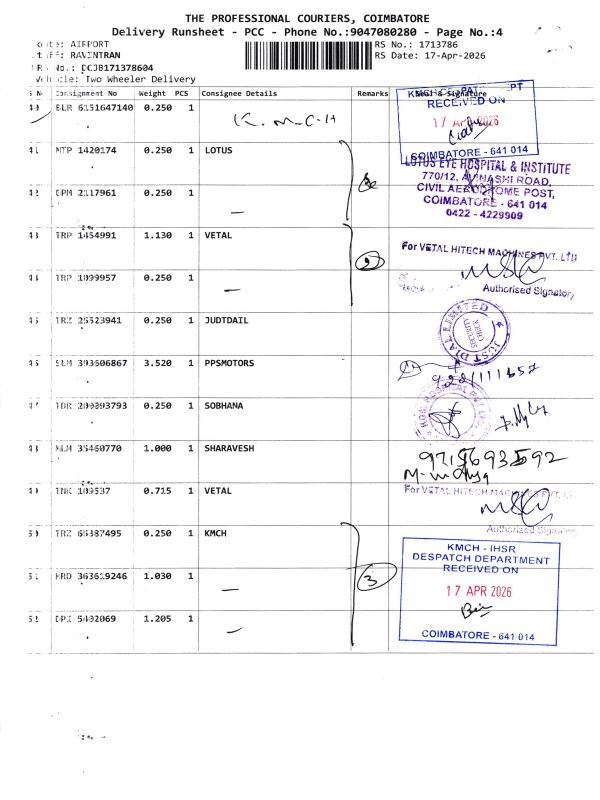 THE PROFESSIONAL COURIERS, COIMBATORE
Delivery Runsheet - PCC - Phone No.:9047080280 - Page No.:4
AIRPORT
RS No.: 1713786
RAVINTRAN
RS Date: 17-Apr-2026
No.: DCJB171378604
Two Wheeler Delivery
Consignment No Weight PCS Consignee Details Remarks Seal & Signature
40 BLR 6151647140 0.250 1 K.M.C.H
RECEIVED ON
17 APR 2026
COIMBATORE - 641 014
41 MTP 1420174 0.250 1 LOTUS
LOTUS EYE HOSPITAL & INSTITUTE
770/12, AVINASHI ROAD,
CIVIL AERODROME POST,
COIMBATORE - 641 014
0422 - 4229909
42 2117961 0.250 1 —
43 TRP 1454991 1.130 1 VETAL
For VETAL HITECH MACHINES PVT. LTD
Authorised Signatory
44 TRP 1099957 0.250 1 —
45 TRZ 25523941 0.250 1 JUDTDAIL
JUST DIAL LIMITED
SECURITY CHECK
46 393606867 3.520 1 PPSMOTORS
47 0.250 1 SOBHANA
48 35460770 1.000 1 SHARAVESH
49 TNK 109537 0.715 1 VETAL
For VETAL HITECH MACHINES PVT.
Authorised Signatory
50 TRZ 0.250 1 KMCH
51 HRD 363619246 1.030 1 —
3
KMCH - IHSR
DESPATCH DEPARTMENT
RECEIVED ON
17 APR 2026
COIMBATORE - 641 014
52 5402069 1.205 1 —